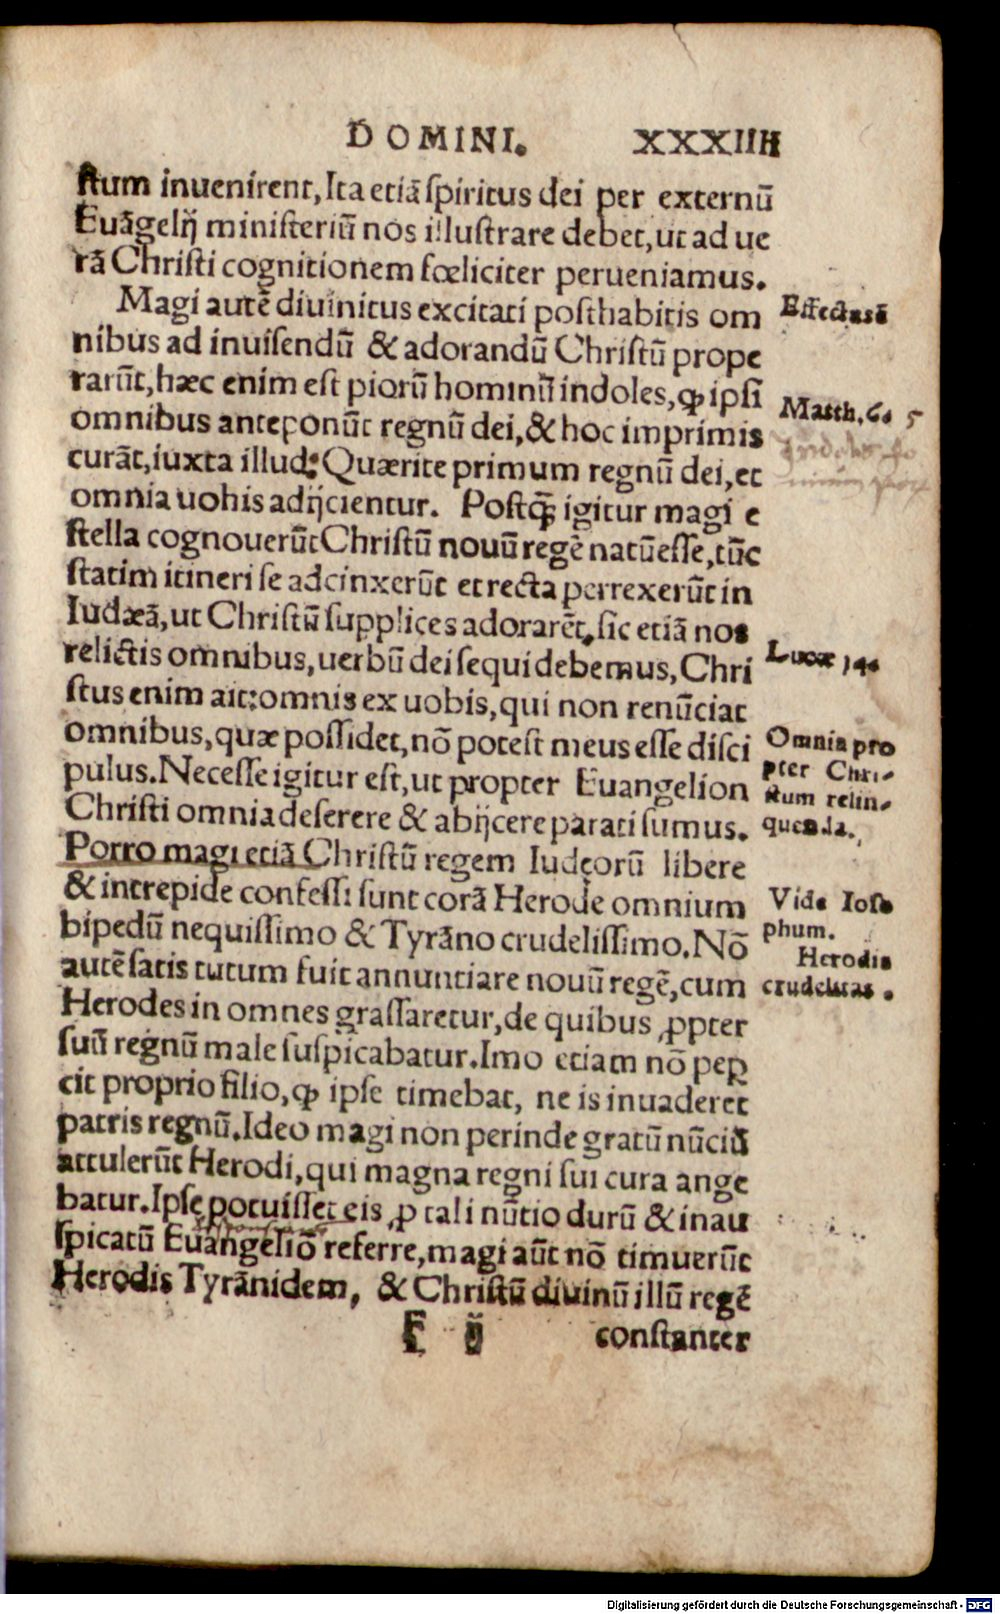 DOMINI. XXXIIII
ſtum inuenirent, Ita etiã ſpiritus dei per externũ
Euãgelij miniſteriũ nos illuſtrare debet, ut ad ue
rã Chriſti cognitionem fœliciter perueniamus.
Magi autẽ diuinitus excitati poſthabitis om
nibus ad inuiſendũ & adorandũ Chriſtũ prope
rarũt, hæc enim eſt piorũ hominũ indoles, ꝙ ipſi
omnibus anteponũt regnũ dei, & hoc imprimis
curãt, iuxta illud: Quærite primum regnũ dei, et
omnia uobis adijcientur. Poſtꝗ̃ igitur magi e
ſtella cognouerũt Chriſtũ nouũ regẽ natũ eſſe, tũc
ſtatim itineri ſe adcinxerũt et recta perrexerũt in
Iudæã, ut Chriſtũ supplices adorarẽt, ſic etiã nos
relictis omnibus, uerbũ dei ſequi debemus, Chri
ſtus enim ait: omnis ex uobis, qui non renũciat
omnibus, quæ poſſidet, nõ poteſt meus eſſe diſci
pulus. Neceſſe igitur eſt, ut propter Euangelion
Chriſti omnia deſerere & abijcere parati ſumus.
Porro magi etiã Chriſtũ regem Iudęorũ libere
& intrepide confeſſi ſunt corã Herode omnium
bipedũ nequiſſimo & Tyrãno crudeliſſimo. Nõ
autẽ ſatis tutum fuit annuntiare nouũ regẽ, cum
Herodes in omnes graſſaretur, de quibus ꝓpter
ſuũ regnũ male ſuſpicabatur. Imo etiam nõ peꝑ
cit proprio filio, ꝙ ipſe timebat, ne is inuaderet
patris regnũ. Ideo magi non perinde gratũ nũciũ
attulerũt Herodi, qui magna regni ſui cura ange
batur. Ipſe potuiſſet eis ꝓ tali nũtio durũ & inau
ſpicatũ Euangeliõ referre, magi aũt nõ timuerũt
Herodis Tyrãnidem, & Chriſtũ diuinũ illũ regẽ
E ij constanter
Effectus
Matth. 6. 5
Lucæ 14.
Omnia pro
pter Chri-
ſtum relin-
quenda.
Vide Ioſe
phum.
Herodis
crudelitas.
Digitalisierung gefördert durch die Deutsche Forschungsgemeinschaft - DFG